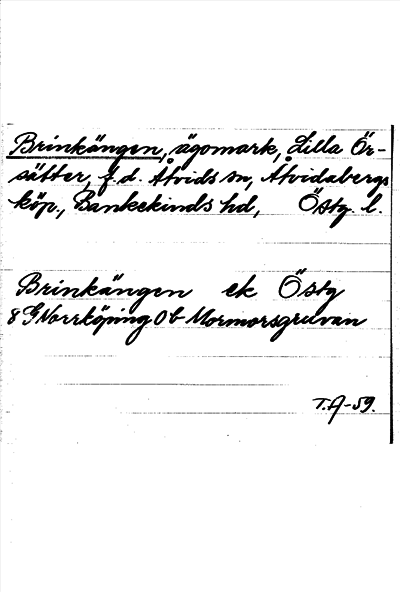 Brinkängen, ägomark, Lilla Ör-
sätter, f.d. Åtvids sn, Åtvidabergs
köp., Bankekinds hd, Östg. l.
Brinkängen ek Östg
8 G Norrköping 0b Mormorsgruvan
T.A-59.